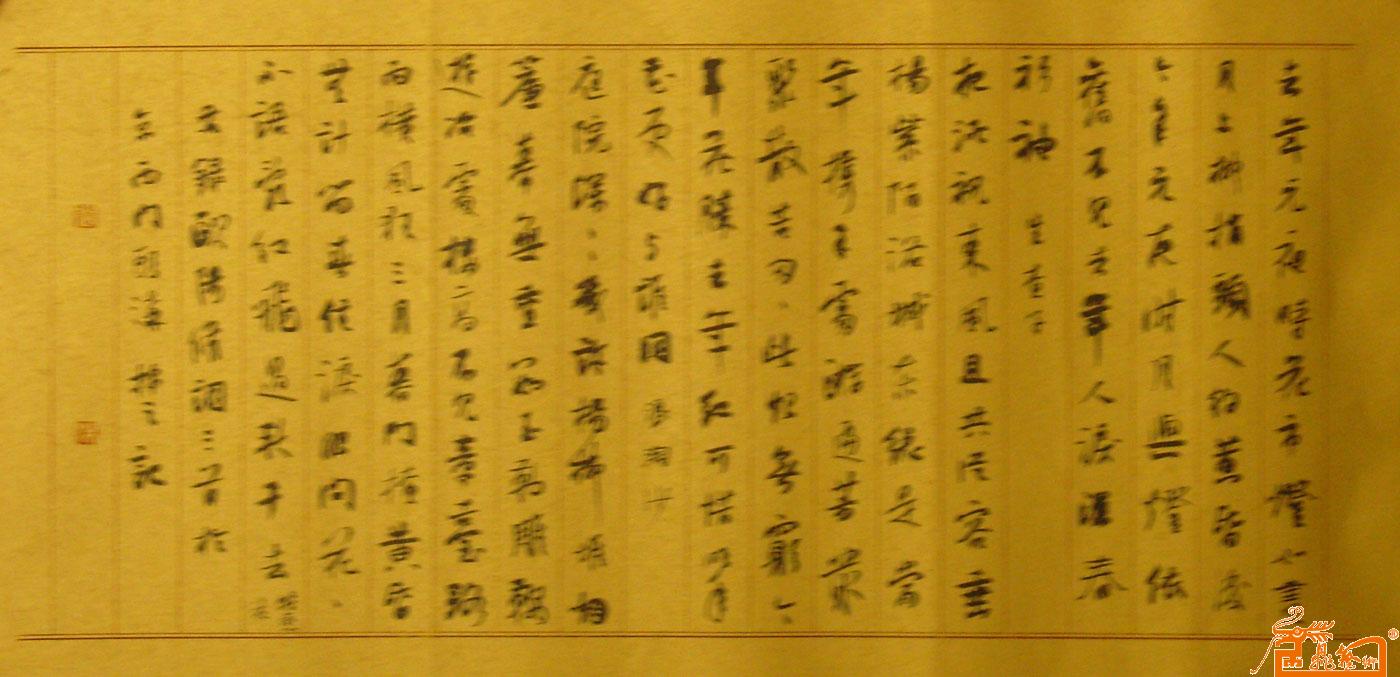 去年元夜時花市燈如晝
月上柳梢頭人約黃昏後
今年元夜時月與燈依
舊不見去年人淚濕春
衫袖 生查子
把酒祝東風且共從容垂
楊紫陌洛城東總是當
年攜手處游遍芳叢
聚散苦匆匆此恨無窮今
年花勝去年紅可惜明年
花更好與誰同 浪淘沙
庭院深深幾許楊柳堆烟
簾幕無重數玉勒雕鞍
遊冶處樓高不見章臺路
雨橫風狂三月暮門掩黃昏
無計留春住淚眼問花花
不語亂紅飛過鞦韆去 蝶戀花
歐陽修詞三首於